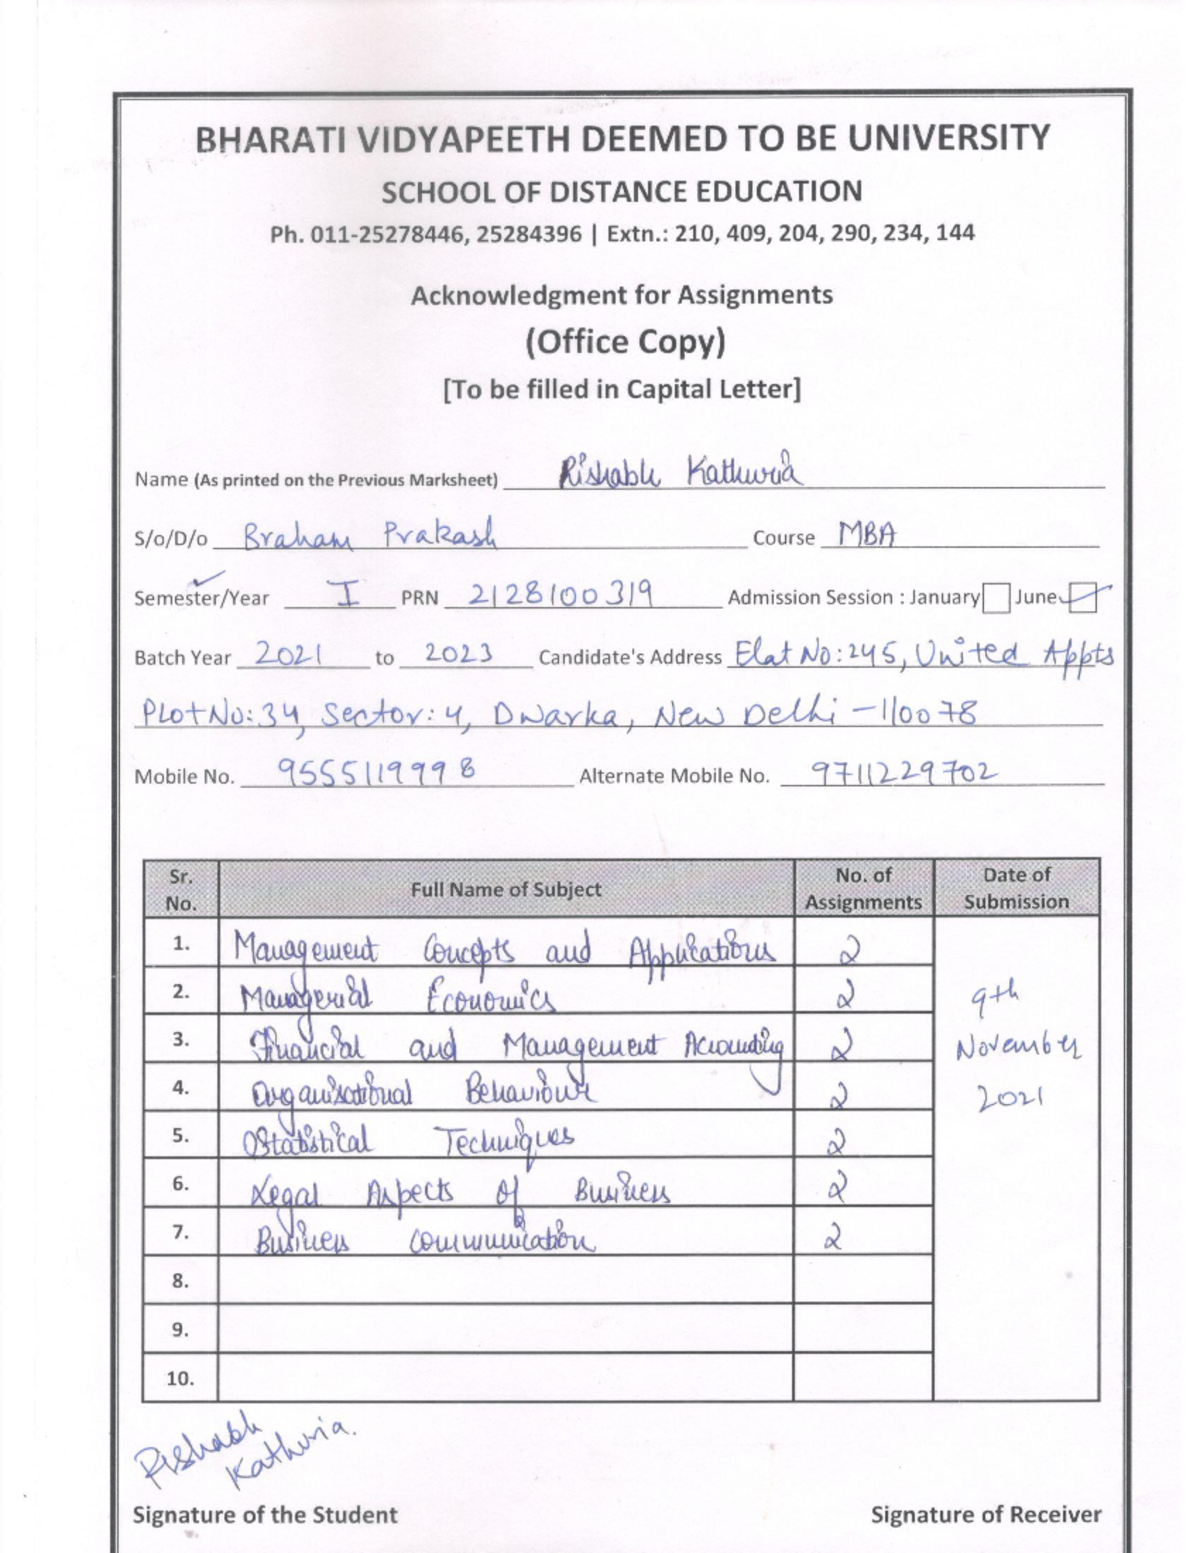 BHARATI VIDYAPEETH DEEMED TO BE UNIVERSITY
SCHOOL OF DISTANCE EDUCATION
Ph. 011-25278446, 25284396 | Extn.: 210, 409, 204, 290, 234, 144
Acknowledgment for Assignments
(Office Copy)
[To be filled in Capital Letter]
Name (As printed on the Previous Marksheet) Rishabh Kathuria
S/o/D/o Braham Prakash Course MBA
Semester/Year I PRN 2128100319 Admission Session : January June
Batch Year 2021 to 2023 Candidate's Address Flat No: 245, United Appts
Plot No: 34, Sector: 4, Dwarka, New Delhi - 110078
Mobile No. 9555119998 Alternate Mobile No. 9711229702
Sr. No. Full Name of Subject No. of Assignments Date of Submission
1. Management Concepts and Applications 2
2. Managerial Economics 2 9th
3. Financial and Management Accounting 2 November
4. Organisational Behaviour 2 2021
5. Statistical Techniques 2
6. Legal Aspects of Business 2
7. Business Communication 2
8.
9.
10.
Rishabh
Kathuria.
Signature of the Student Signature of Receiver